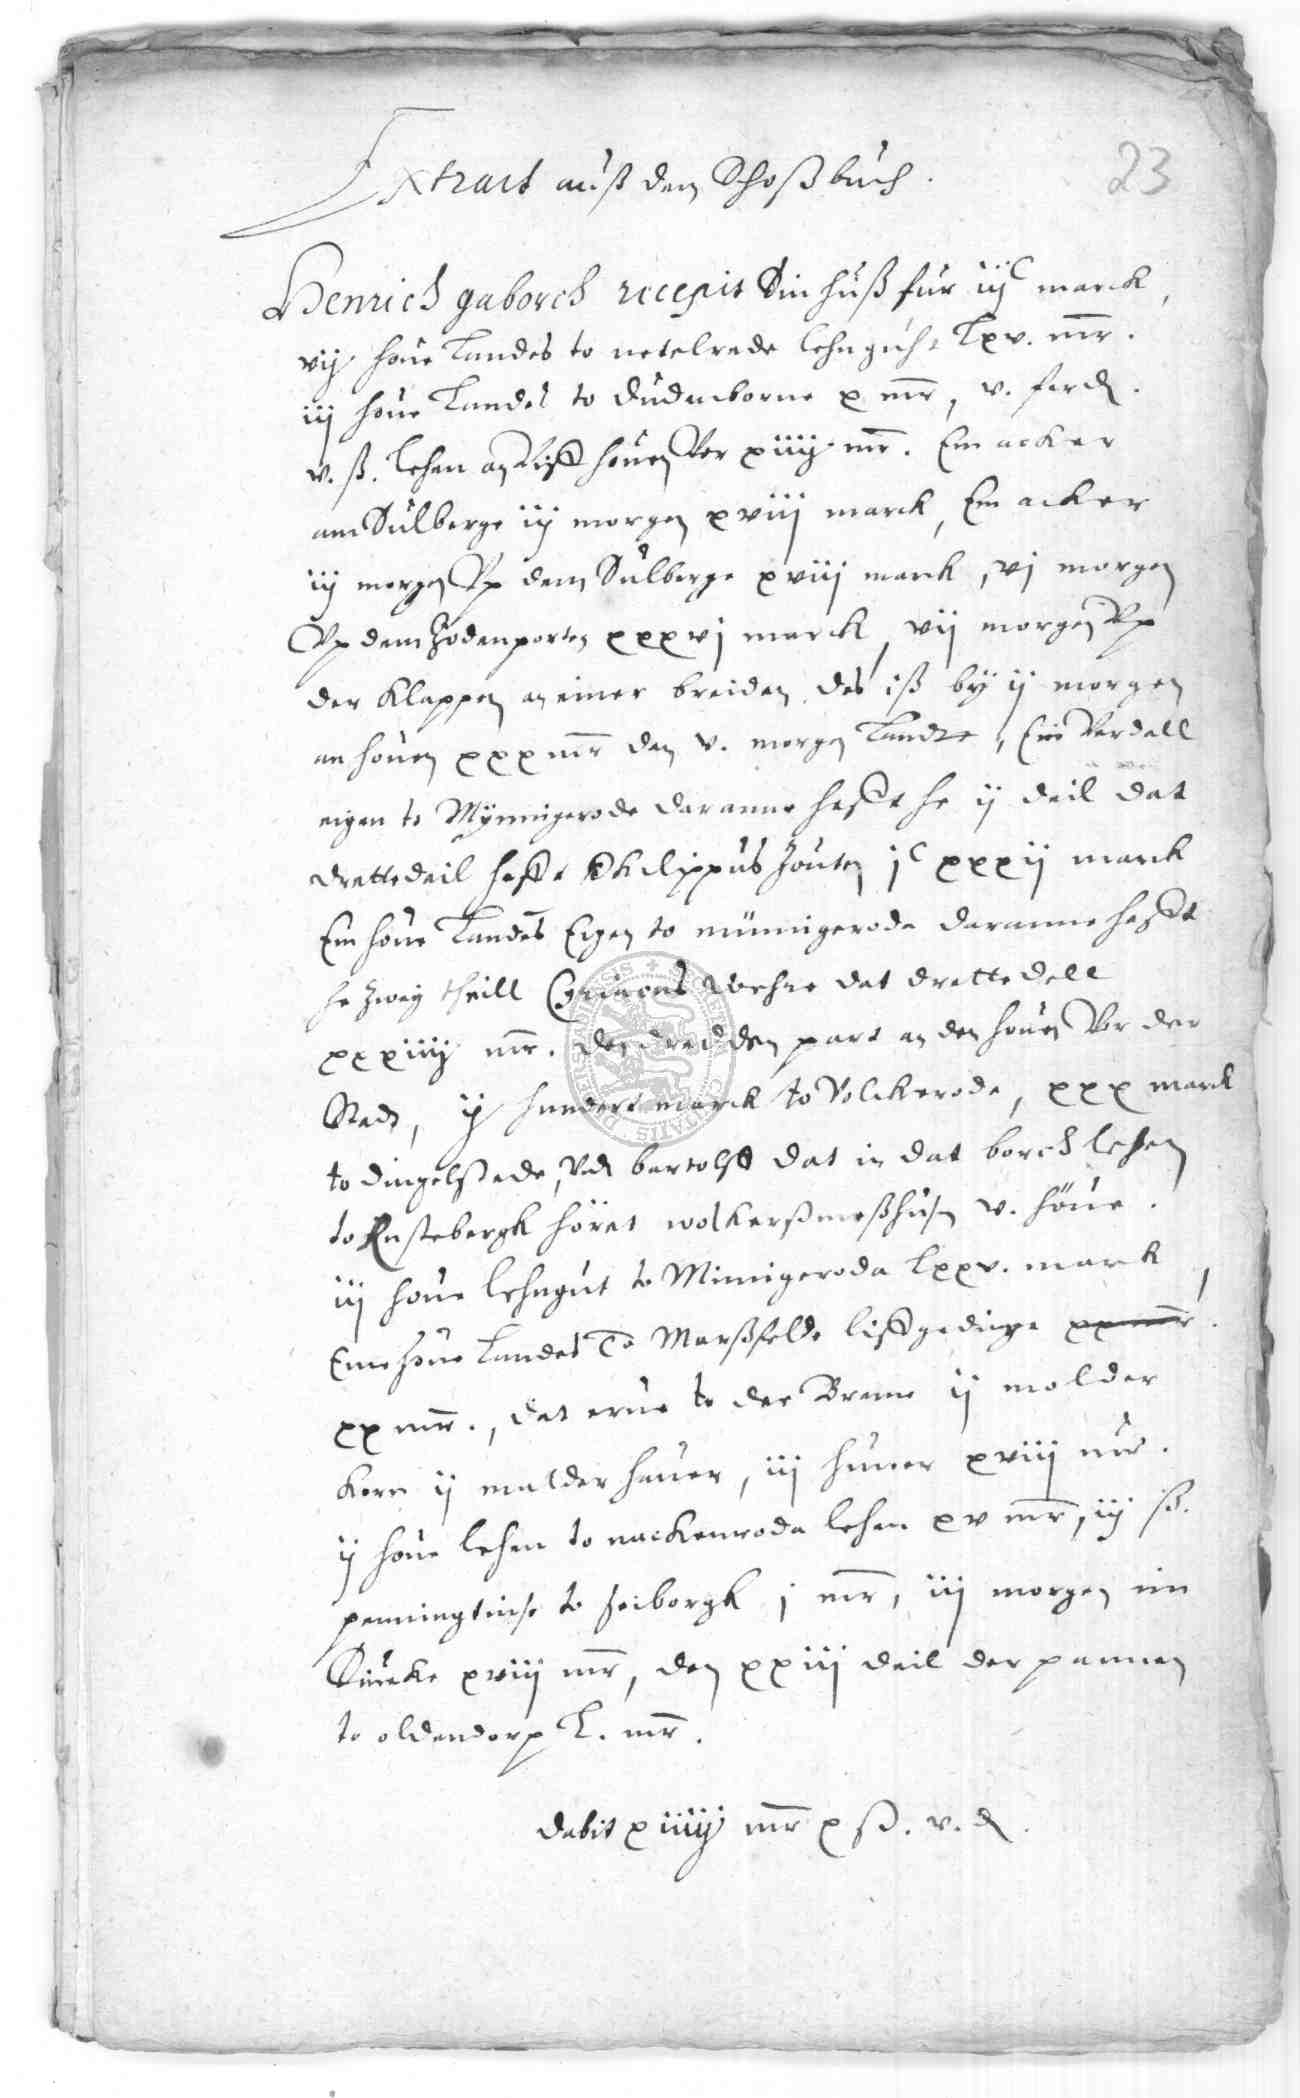 Extract auß dem Schoßbuch.
23
Henrich gaborch recepit Sin huß fur iijC marck,
vij houe Landes to netelrede lehnguht Lxv. mr.
iij houe Landes to Dudenborne x mr, v. ferd.
v. ß. lehen an houen vor xiiij mr. Ein acker
am Sulberge iij morgen xviij marck, Ein acker
iij morgen Up dem Sulberge xviij marck, vj morgen
Up dem Jodenporten xxxvj marck, vij morgen Up
der Klappen an einer breiden des iß by ij morgen
an houen xxx mr den v. morgen Landes, Ein Verdell
eigen to Mynnigerode daranne hefft he ij deil dat
drettedeil hefft Philippus Jouten jC xxxij marck
Ein houe Landes Eigen to minnigerode daranne hefft
he zwey theill dat drettedell
xxxiiij mr. den dredden part an den houen Vor der
Stadt, ij hundert marck to Volckerode, xxx marck
to dingelstede, Vnd bartolff dat in dat borchlehen
to Rustebergk höret wolkerßmeßhusen v. höue.
iij houe lehngut to Minnigeroda Lxxv. marck,
Eine houe Landes To Marßfelde lifftgedinge xx mr.
xx mr., dat erue to der Breme ij molder
Korn ij malder hauer, iij huner xviij mr.
ij houe lehen to nackenroda lehen xv mr, iij ß.
penningtinse to seeborgk j mr, iij morgen im
xviij mr, den xxiij deil der pannen
to oldendorp L. mr.
dabit xiiij mr x ß. v. d.
SECRETUM CIVITATIS